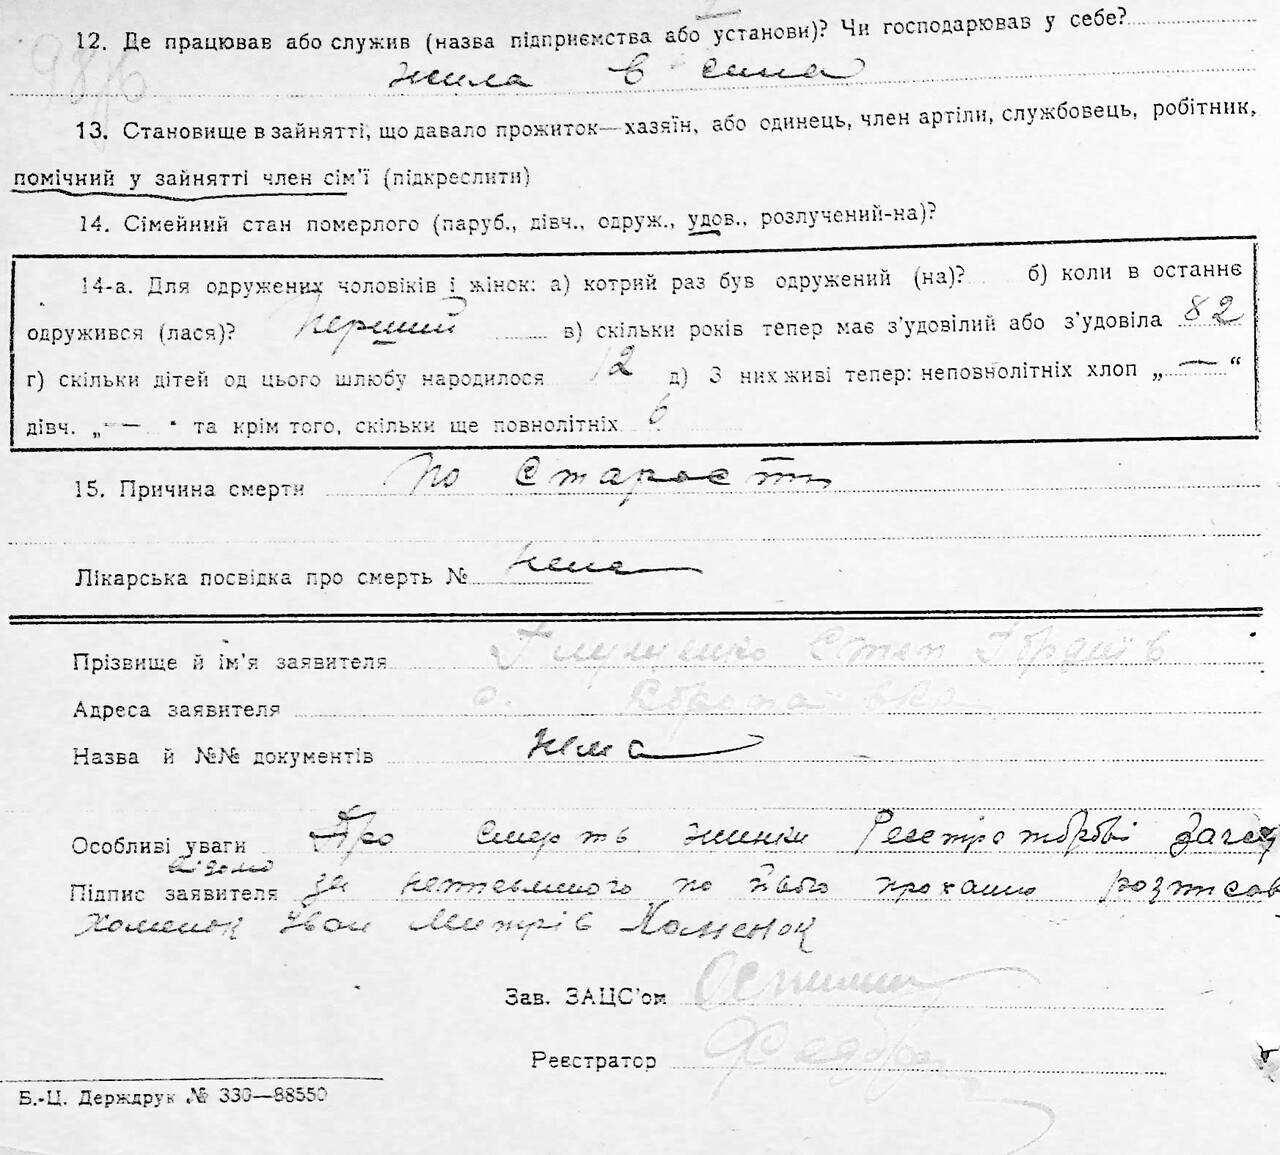 12. Де працював або служив (назва підприємства або установи)? Чи господарював у себе?
жила в сина
13. Становище в зайнятті, що давало прожиток—хазяїн, або одинець, член артіли, службовець, робітник,
помічний у зайнятті член сім'ї (підкреслити)
14. Сімейний стан померлого (паруб., дівч., одруж., удов., розлучений-на)?
14-а. Для одружених чоловіків і жінок: а) котрий раз був одружений (на)? б) коли в останнє
одружився (лася)? Перший в) скільки років тепер має з'удовілий або з'удовіла 82
г) скільки дітей од цього шлюбу народилося 12 д) З них живі тепер: неповнолітніх хлоп „ — “
дівч. „ — " та крім того, скільки ще повнолітніх 6
15. Причина смерти по старости
Лікарська посвідка про смерть № нема
Прізвище й ім'я заявителя Глущенко Степ
Адреса заявителя с.
Назва й №№ документів нема
Особливі уваги Про смерть жинки
відомо
Підпис заявителя за неписьмного по його проханю розписав
Хоменок Іван Митрів Хоменок
Зав. ЗАЦС'ом
Реєстратор
Б.-Ц. Держдрук № 330—88550